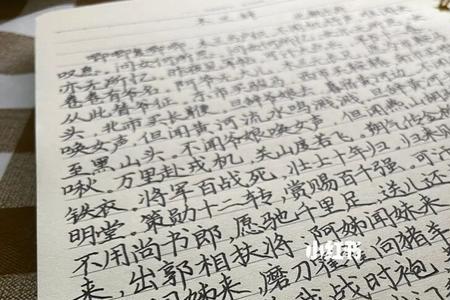 木兰辞
唧唧复唧唧
叹息。问女何所思
亦无所忆。昨夜见军帖
卷卷有爷名。阿爷无大儿
从此替爷征。东市买骏马，西市买鞍鞯
头，北市买长鞭。旦辞爷娘去，暮宿黄河边
唤女声，但闻黄河流水鸣溅溅。旦辞黄河
至黑山头，不闻爷娘唤女声，但闻燕山胡
啾。万里赴戎机，关山度若飞。朔气传金柝
铁衣。将军百战死，壮士十年归。归来见
明堂。策勋十二转，赏赐百千强。可汗
不用尚书郎，愿驰千里足，送儿还
来，出郭相扶将，阿姊闻妹来
闻姊来，磨刀霍霍向猪羊
我战时袍
小红书